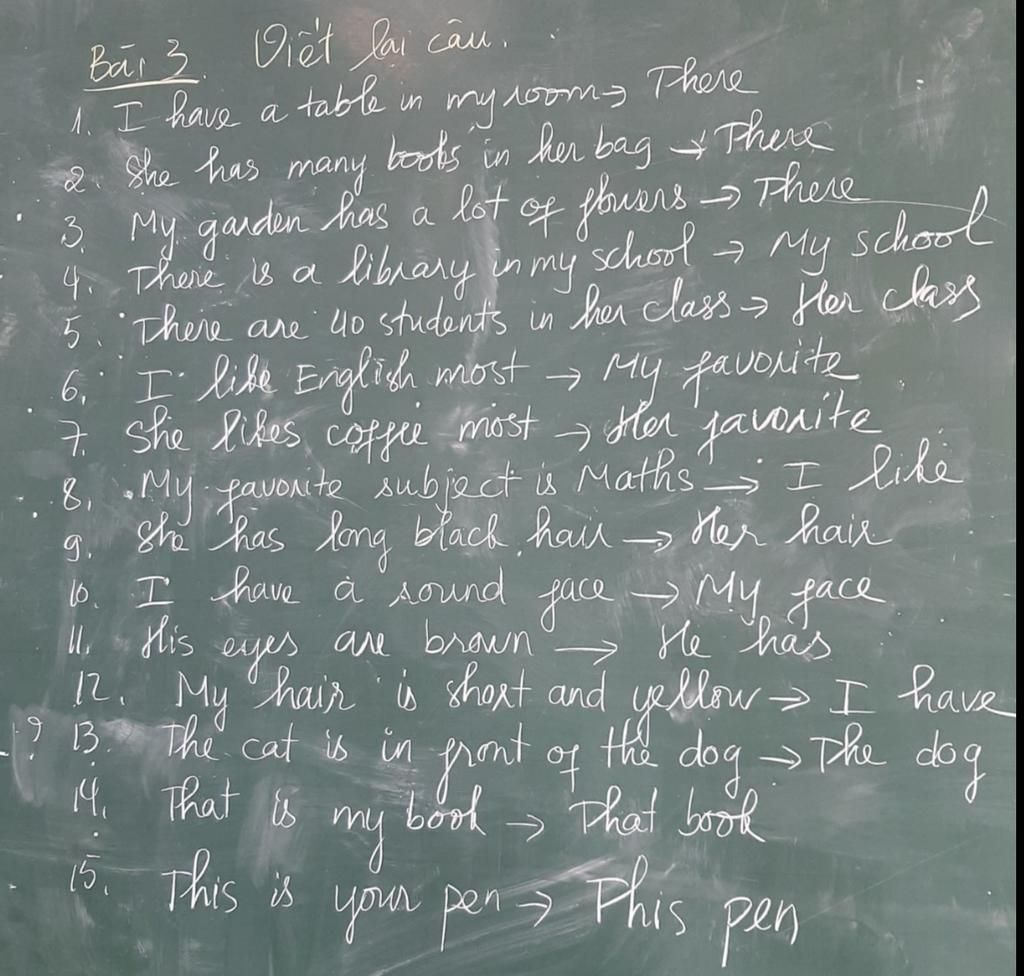 Bài 3. Viết lại câu.
1. I have a table in my room → There
2. She has many books in her bag → There
3. My garden has a lot of flowers → There
4. There is a library in my school → My school
5. There are 40 students in her class → Her class
6. I like English most → My favorite
7. She likes coffee most → Her favorite
8. My favorite subject is Maths → I like
9. She has long black hair → Her hair
10. I have a round face → My face
11. His eyes are brown → He has
12. My hair is short and yellow → I have
? 13. The cat is in front of the dog → The dog
14. That is my book → That book
15. This is your pen → This pen